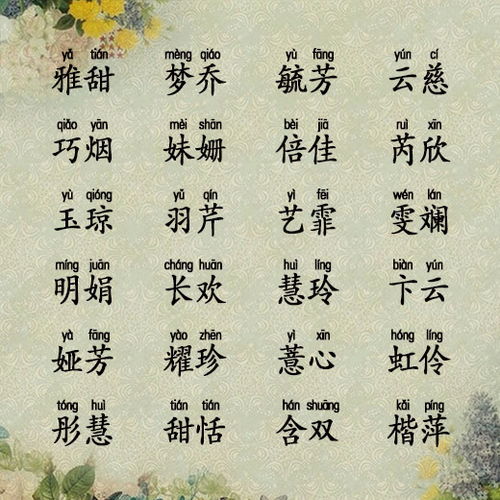 yǎ tián mèng qiáo yù fāng yún cí
雅甜 梦乔 毓芳 云慈
qiǎo yān mèi shān bèi jiā ruì xīn
巧烟 妹姗 倍佳 芮欣
yù qióng yǔ qín yì fēi wén lán
玉琼 羽芹 艺霏 雯斓
míng juān cháng huān huì líng biàn yún
明娟 长欢 慧玲 卞云
yà fāng yào zhēn yì xīn hóng líng
娅芳 耀珍 薏心 虹伶
tóng huì tián tián hán shuāng kǎi píng
彤慧 甜恬 含双 楷萍